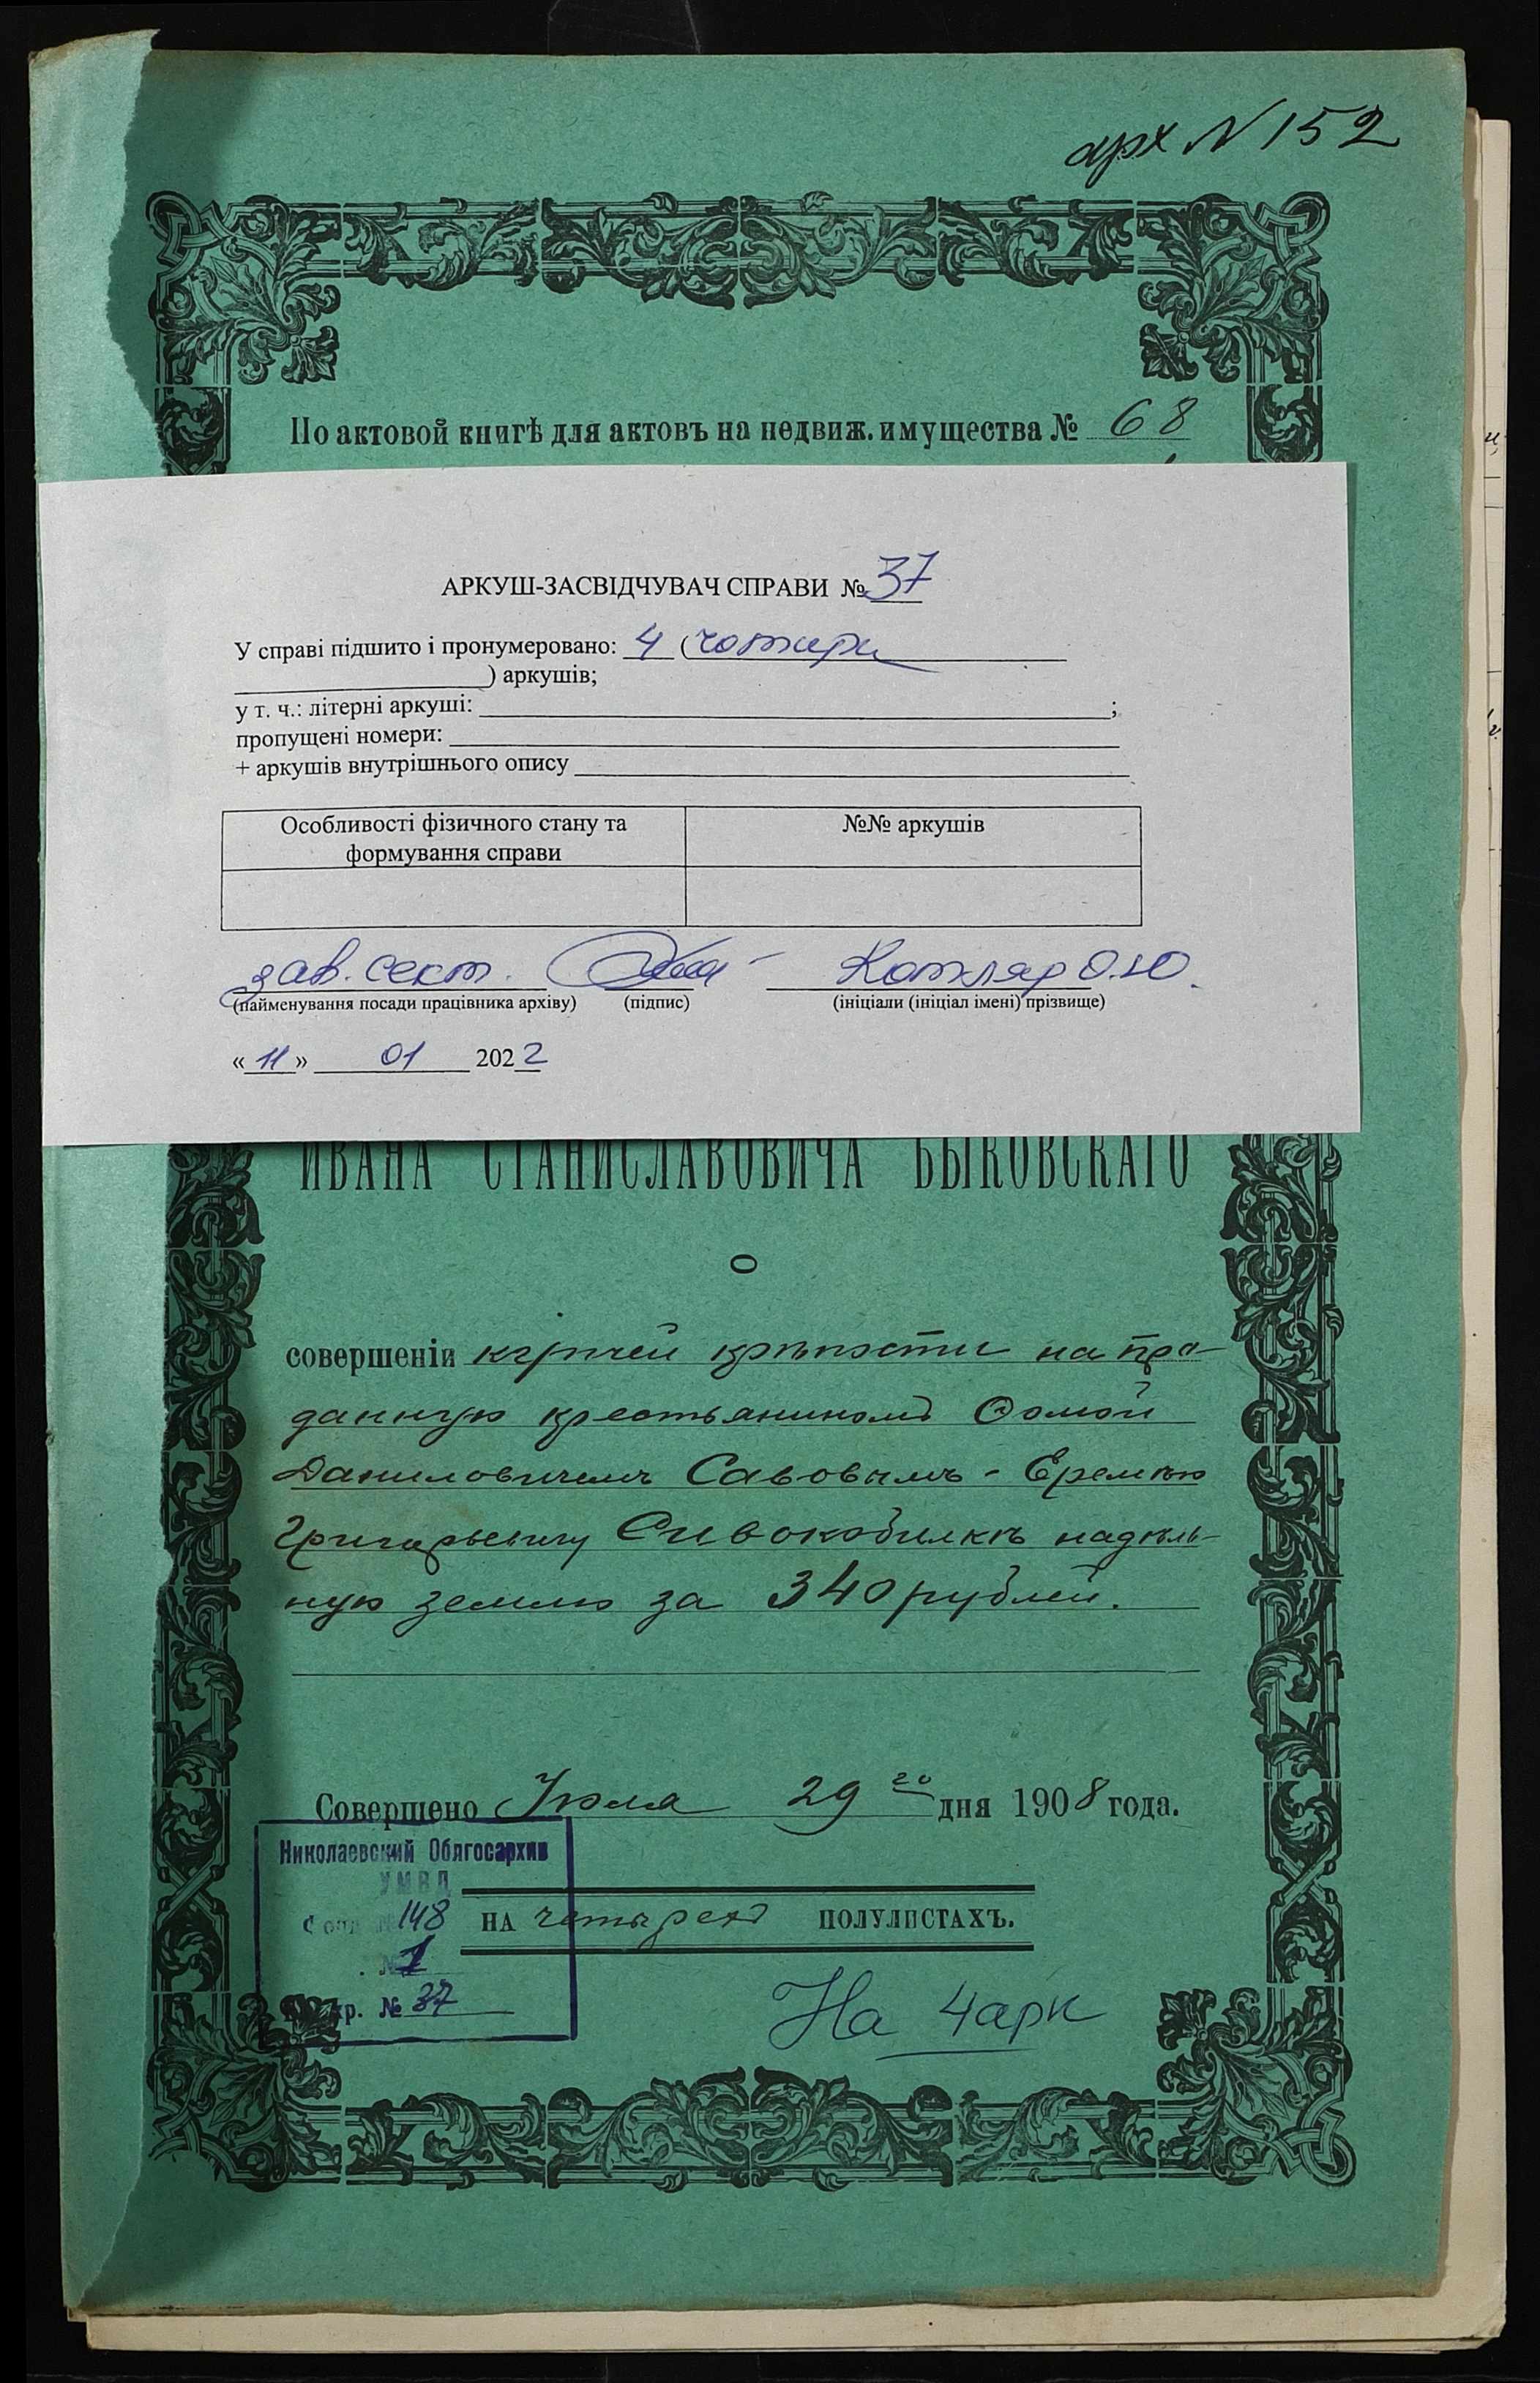 арх N 152
По актовой книгѣ для актовъ на недвиж. имущества № 68
АРКУШ-ЗАСВІДЧУВАЧ СПРАВИ № 37
У справі підшито і пронумеровано: 4 (чотири
) аркушів;
у т. ч.: літерні аркуші: ;
пропущені номери:
+ аркушів внутрішнього опису
Особливості фізичного стану та №№ аркушів
формування справи
зав. сект. Котляр О.Ю.
(найменування посади працівника архіву) (підпис) (ініціали (ініціал імені) прізвище)
«11» 01 2022
ИВАНА СТАНИСЛАВОВИЧА БЫКОВСКАГО
О
совершеніи купчей крѣпости на про-
данную крестьяниномъ Ѳомой
Даниловичемъ Савовымъ - Еремѣю
Григорьевичу Сивокобилкѣ надѣль-
ную землю за 340 рублей.
Совершено Іюля 29 го дня 1908 года.
Николаевский Облгосархив
УМВД
Фонд № 148 НА четырехъ ПОЛУЛИСТАХЪ.
№ 1
хр. № 37
На 4 арк